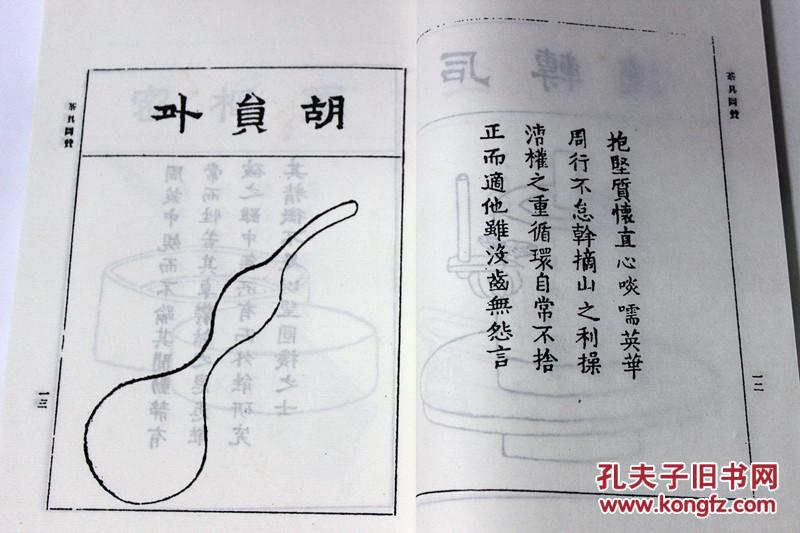 茶具圖贊
抱堅質懷直心啖嚅英華
周行不怠幹摘山之利操
漕權之重循環自常不捨
正而適他雖沒齒無怨言
一二
胡員外
茶具圖贊
一三
孔夫子旧书网
www.kongfz.com